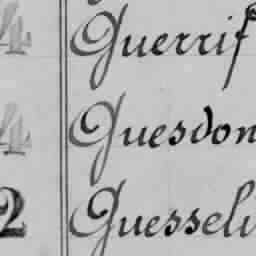 4 Guerrif
4 Guesdon
2 Guesseli